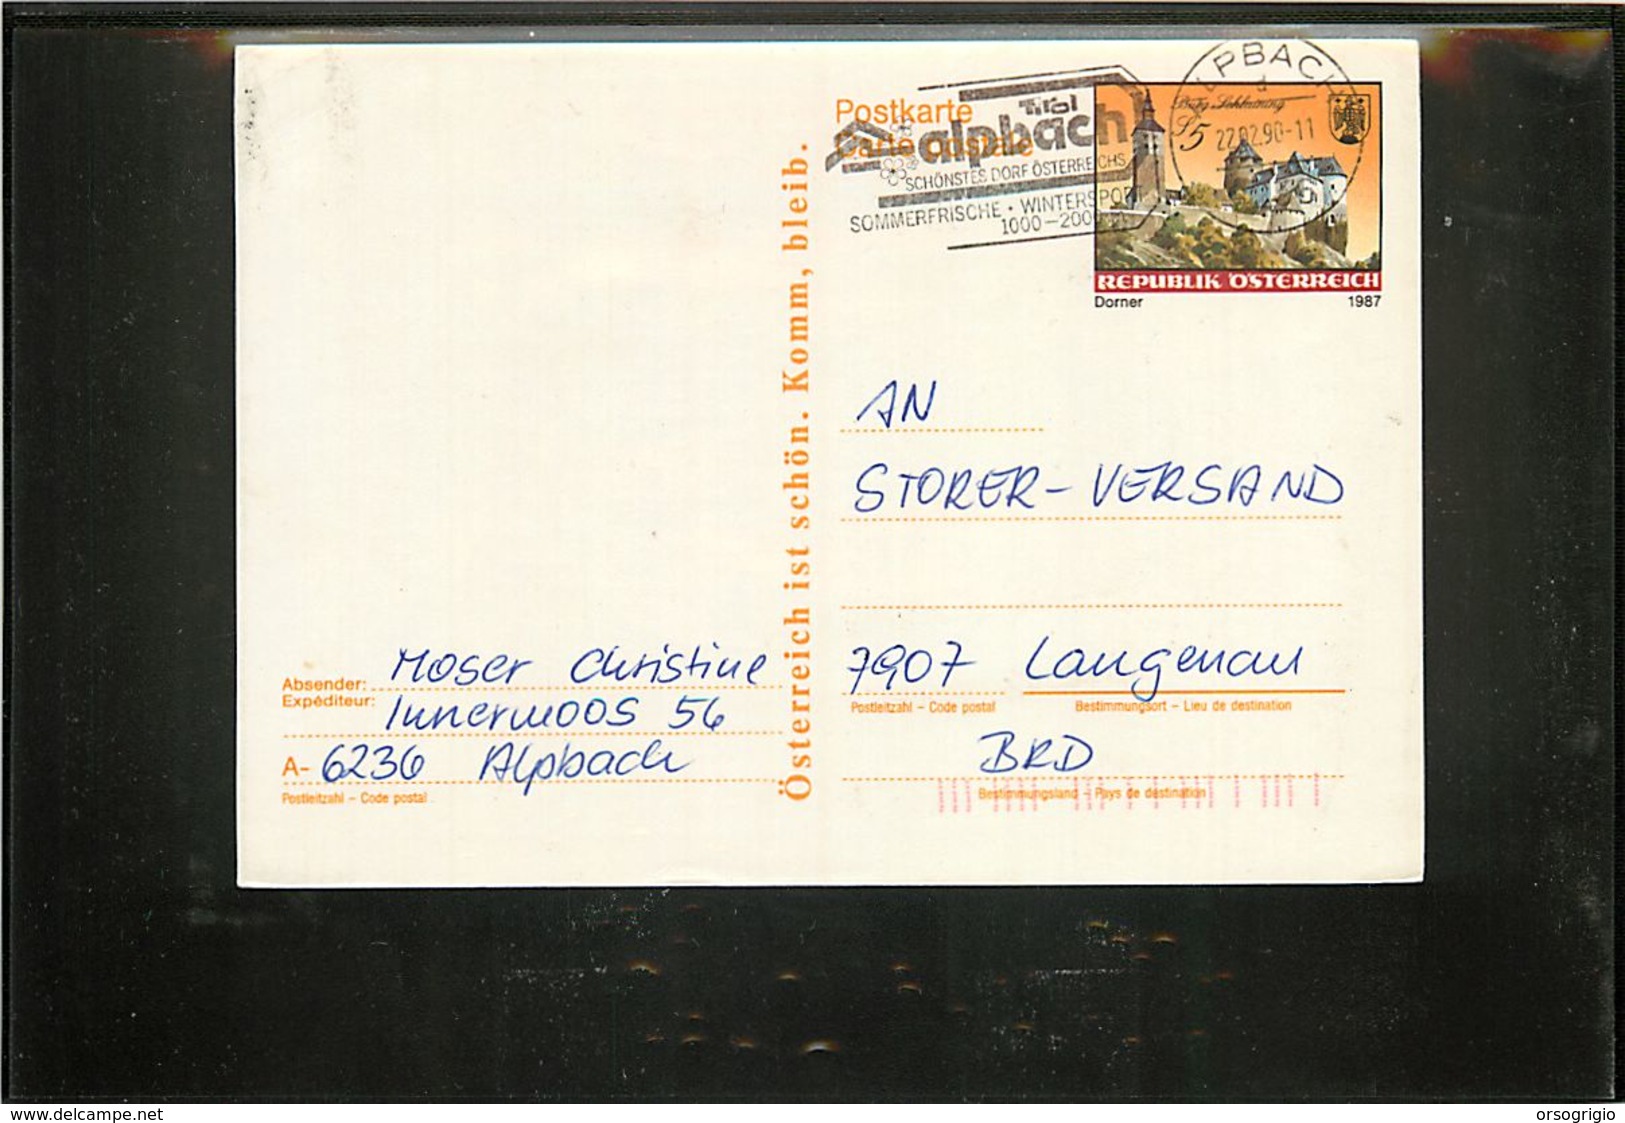 Postkarte
Carte postale
Tirol
alpbach
SCHÖNSTES DORF ÖSTERREICHS
SOMMERFRISCHE • WINTERSPORT
1000–2000 m
ALPBACH
22.02.90-11
Burg Schlaining
S5
REPUBLIK ÖSTERREICH
Dorner 1987
Österreich ist schön. Komm, bleib.
AN
STORER-VERSAND
7907 Langenau
Postleitzahl – Code postal Bestimmungsort – Lieu de destination
BRD
Bestimmungsland – Pays de destination
Absender: Moser Christine
Expéditeur: Innermoos 56
A- 6236 Alpbach
Postleitzahl – Code postal
www.delcampe.net
orsogrigio